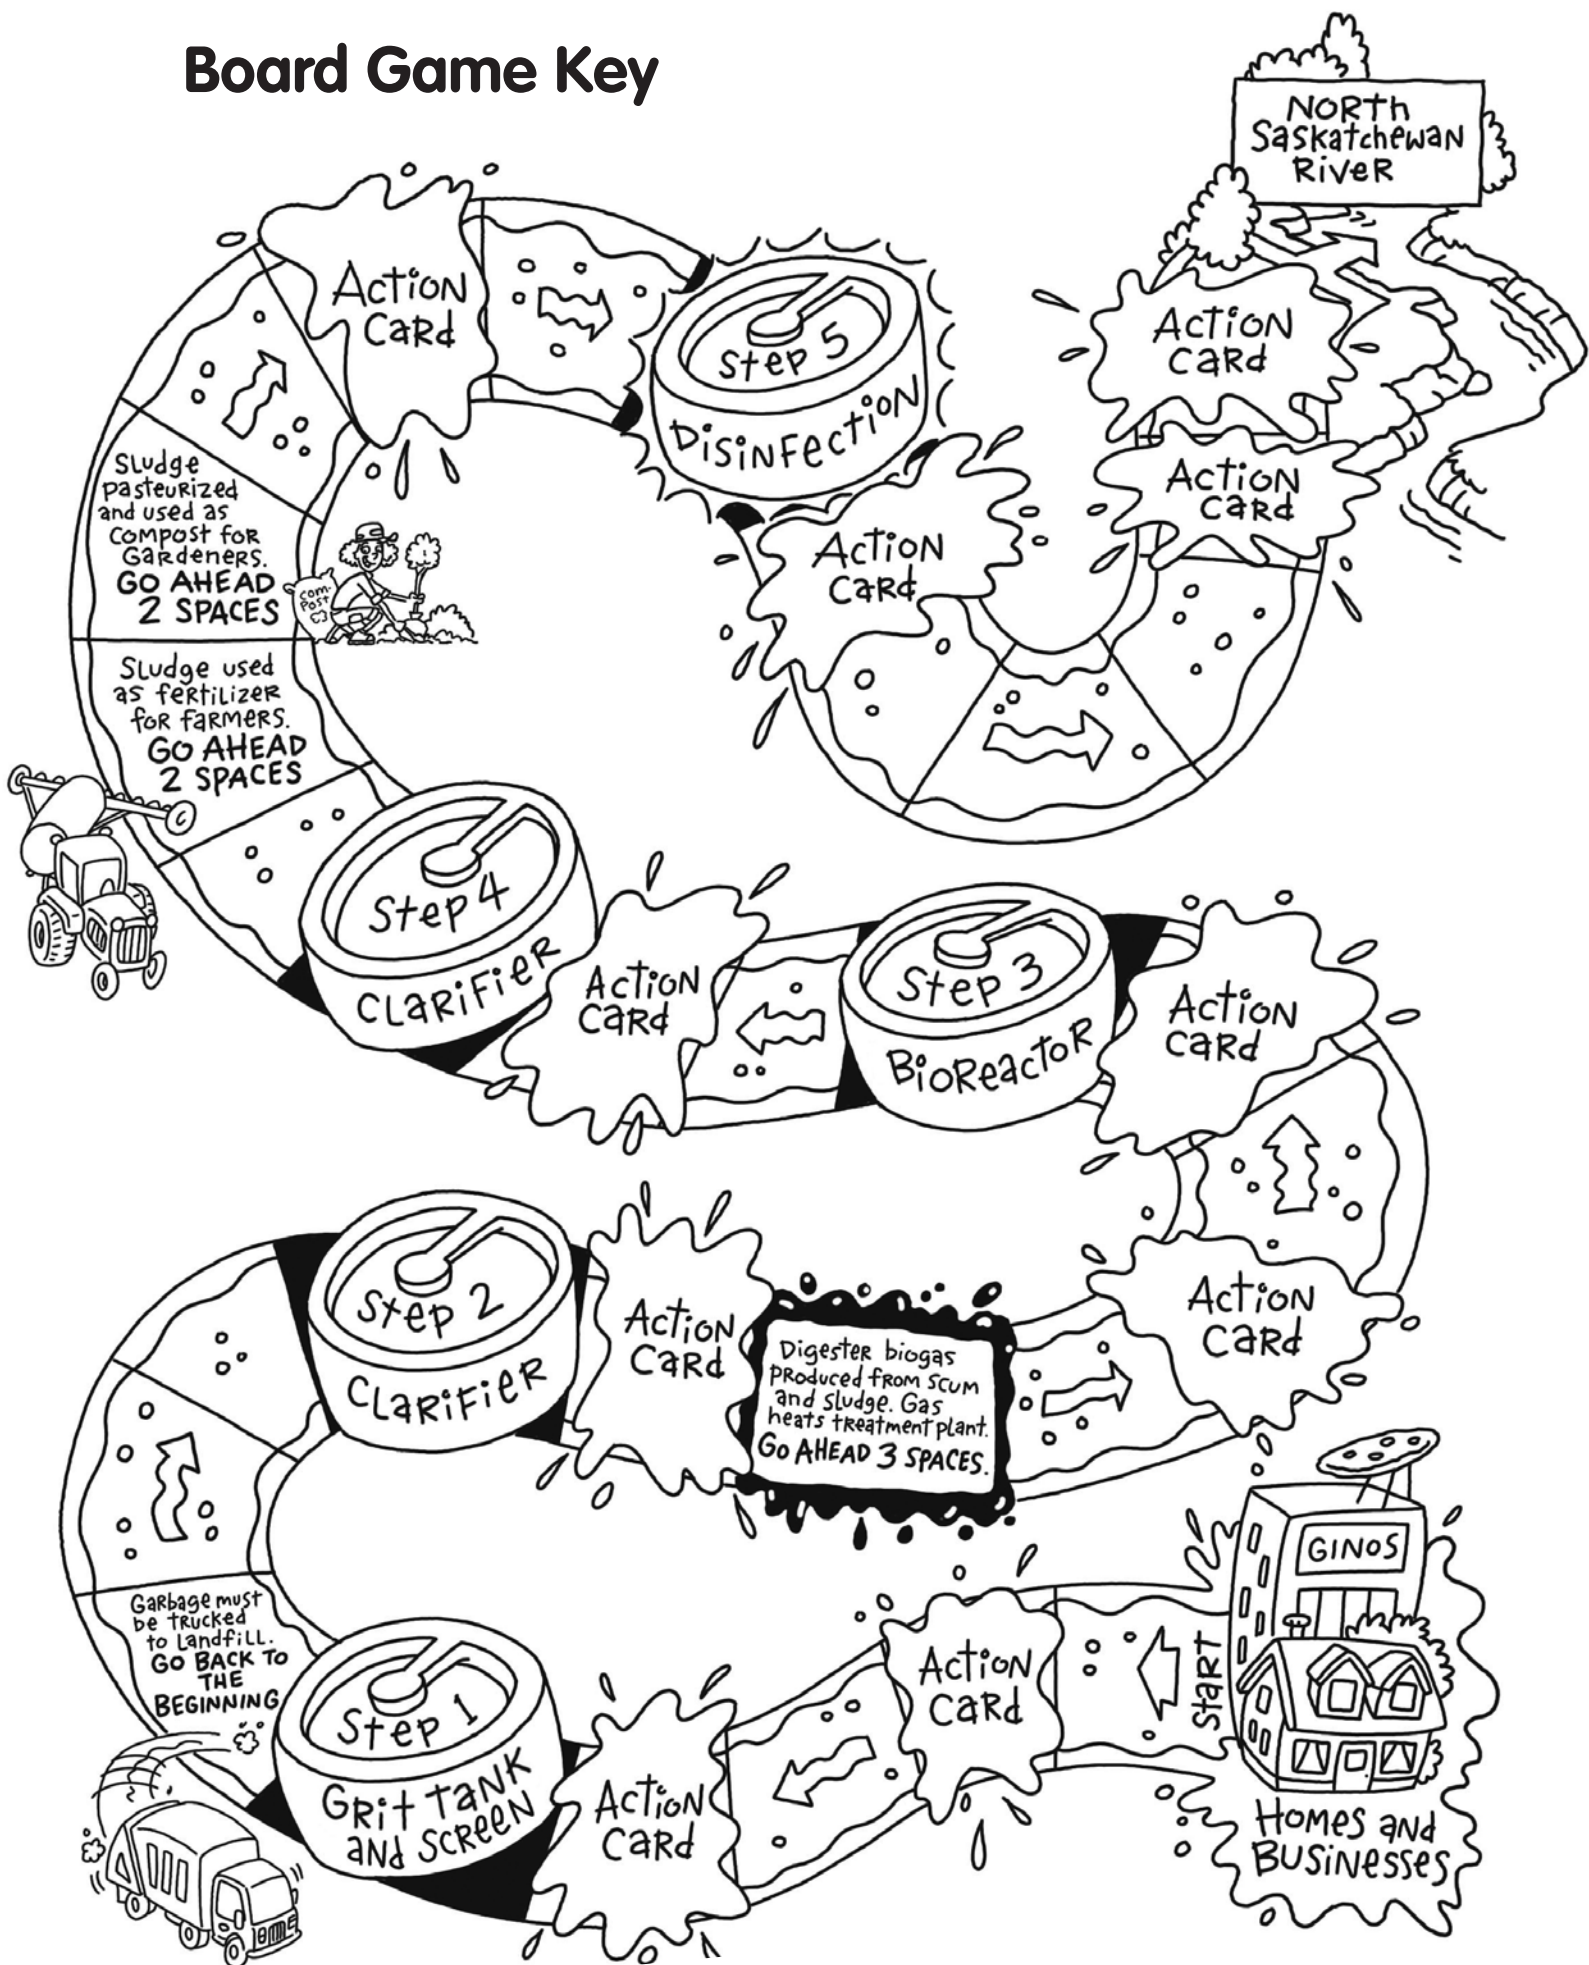 Board Game Key
NORTH
SASKATCHEWAN
RIVER
ACTION
CARD
ACTION
CARD
ACTION
CARD
STEP 5
DISINFECTION
ACTION
CARD
Sludge
pasteurized
and used as
compost for
Gardeners.
GO AHEAD
2 SPACES
COM-
POST
Sludge used
as fertilizer
for farmers.
GO AHEAD
2 SPACES
Step 4
CLARIFIER
ACTION
CARD
Step 3
BIOREACTOR
ACTION
CARD
ACTION
CARD
Digester biogas
produced from scum
and sludge. Gas
heats treatment plant.
GO AHEAD 3 SPACES.
ACTION
CARD
Step 2
CLARIFIER
Garbage must
be trucked
to landfill.
GO BACK TO
THE
BEGINNING
Step 1
GRIT TANK
AND SCREEN
ACTION
CARD
ACTION
CARD
START
GINOS
HOMES AND
BUSINESSES